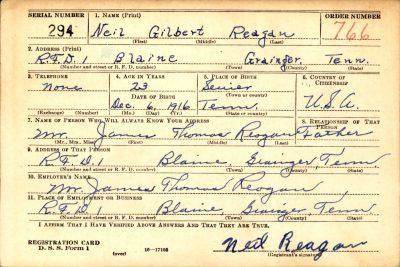 SERIAL NUMBER 1. NAME (Print) ORDER NUMBER
294 Neil Gilbert Reagan 766
(First) (Middle) (Last)
2. ADDRESS (Print)
R.F.D. 1 Blaine Grainger, Tenn.
(Number and street or R. F. D. number) (Town) (County) (State)
3. TELEPHONE 4. AGE IN YEARS 5. PLACE OF BIRTH 6. COUNTRY OF CITIZENSHIP
None 23 Sevier
DATE OF BIRTH (Town or county)
Dec. 6, 1916 Tenn. U.S.A.
(Exchange) (Number) (Mo.) (Day) (Yr.) (State or country)
7. NAME OF PERSON WHO WILL ALWAYS KNOW YOUR ADDRESS 8. RELATIONSHIP OF THAT PERSON
Mr. James Thomas Reagan Father
(Mr., Mrs., Miss) (First) (Middle) (Last)
9. ADDRESS OF THAT PERSON
R.F.D. 1 Blaine Grainger Tenn
(Number and street or R. F. D. number) (Town) (County) (State)
10. EMPLOYER'S NAME
Mr. James Thomas Reagan
11. PLACE OF EMPLOYMENT OR BUSINESS
R.F.D. 1 Blaine Grainger, Tenn
(Number and street or R. F. D. number) (Town) (County) (State)
I AFFIRM THAT I HAVE VERIFIED ABOVE ANSWERS AND THAT THEY ARE TRUE.
REGISTRATION CARD
D. S. S. Form 1 (over) 16-17105 Neil Reagan
(Registrant's signature)